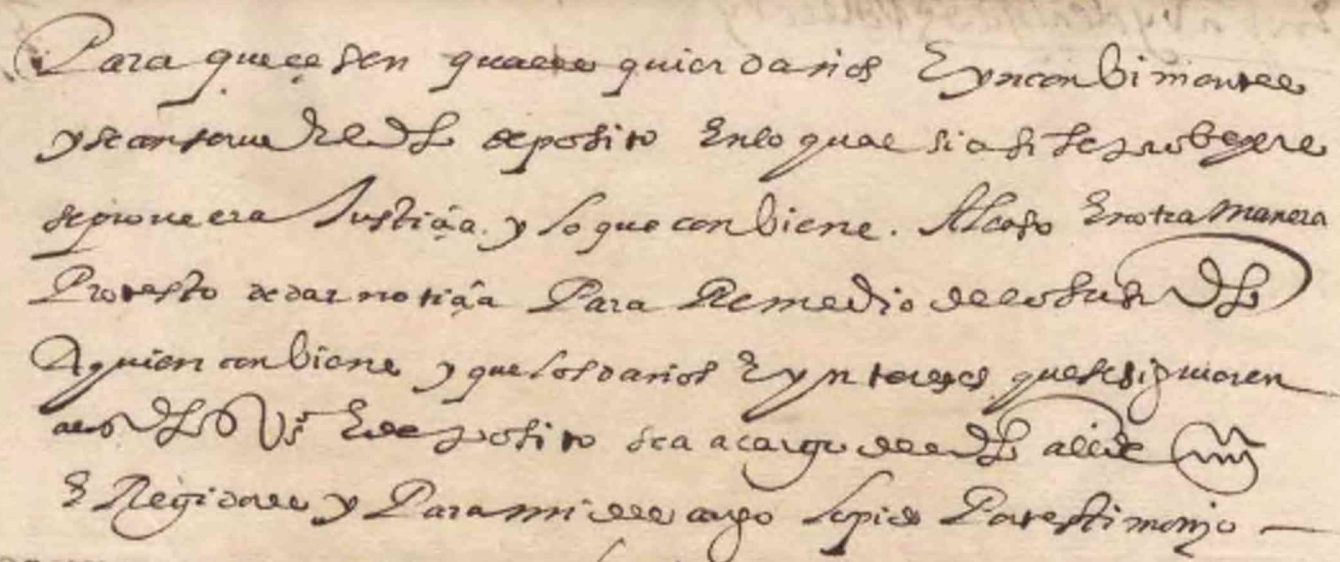 Para que çesen quales quier daños E ynconbinientes
y se conserue el dho deposito En lo qual si asi se probeyere
se proueera Justiçia. y lo que conbiene. Al caso En otra manera
Protesto de dar notiçia Para Remedio de lo susodho
A quien conbiene y que los daños E yntereses que se siguieren
a los dhos Vos E deposito sea a cargo del dho allde
E Regidores y Para mi descargo lo pido Por testimonio